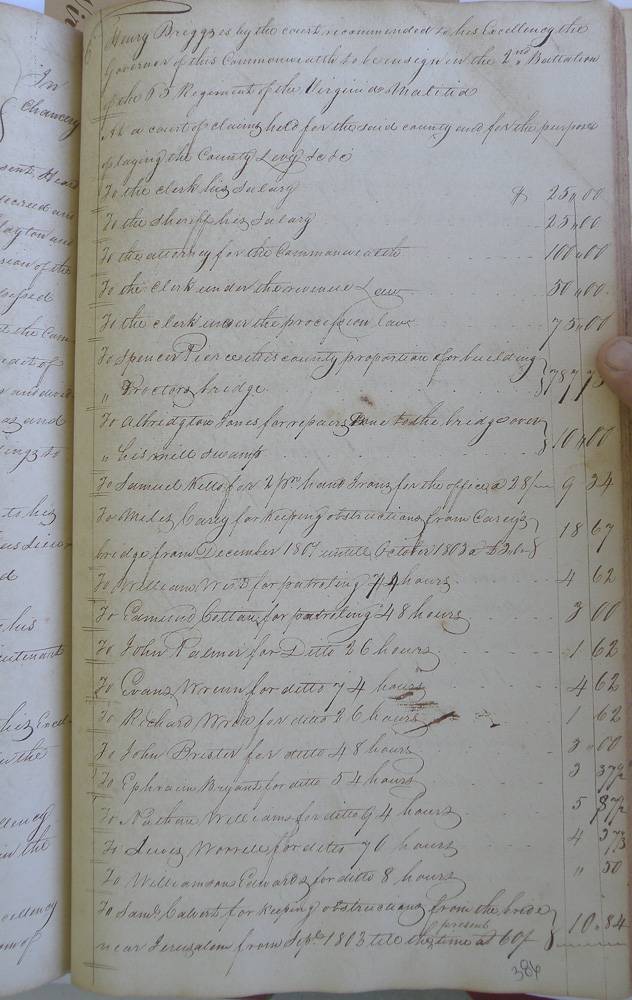 In
Chancery
Henry Briggs is by the court recommended to his Excellency the
Governor of this Commonwealth to be ensign in the 2nd Battalion
of the 65 Regement of the Virginia Malitia
At a court of claims held for the said county and for the purpose
of laying the County Levy &c &c
To the clerk his salary $ 25,,00
To the sheriff his salary 25,,00
To the attorney for the Commonwealth 100,,00
To the Clerk under the revenue Law 50,,00
To the clerk under the procession law 75,,00
To Spencer Pierce this county proportion for building
,, Proctors bridge 787 75
To Albridgton Jones for repairs done to the bridge over
,, his mill swamp 10,,00
To Samuel Kello for 2 pr hand Irons for the office a 28/ 9 34
To Miles Carey for keeping obstructions from Careys
bridge from December 1801 untill October 1803 a 18 67
To William West for patroling 74 hours 4 62
To Edmund Cotton for patroling 48 hours 3 00
To John Palmer for Ditto 26 hours 1 62
To Evans Wrenn for ditto 74 hours 4 62
To Richard for ditto 26 hours 1 62
To John Brister for ditto 48 hours 3 00
To Ephraim Bryant for ditto 54 hours 3 37½
To Nathan Williams for ditto 94 hours 5 87½
To Lewis Worrell for ditto 70 hours 4 37½
To Williamson Edwards for ditto 8 hours ,, 50
To Saml Calvert for keeping obstructions from the bride
near Jerusalem from Sept 1803 till the present time at 60/ 10.84
386